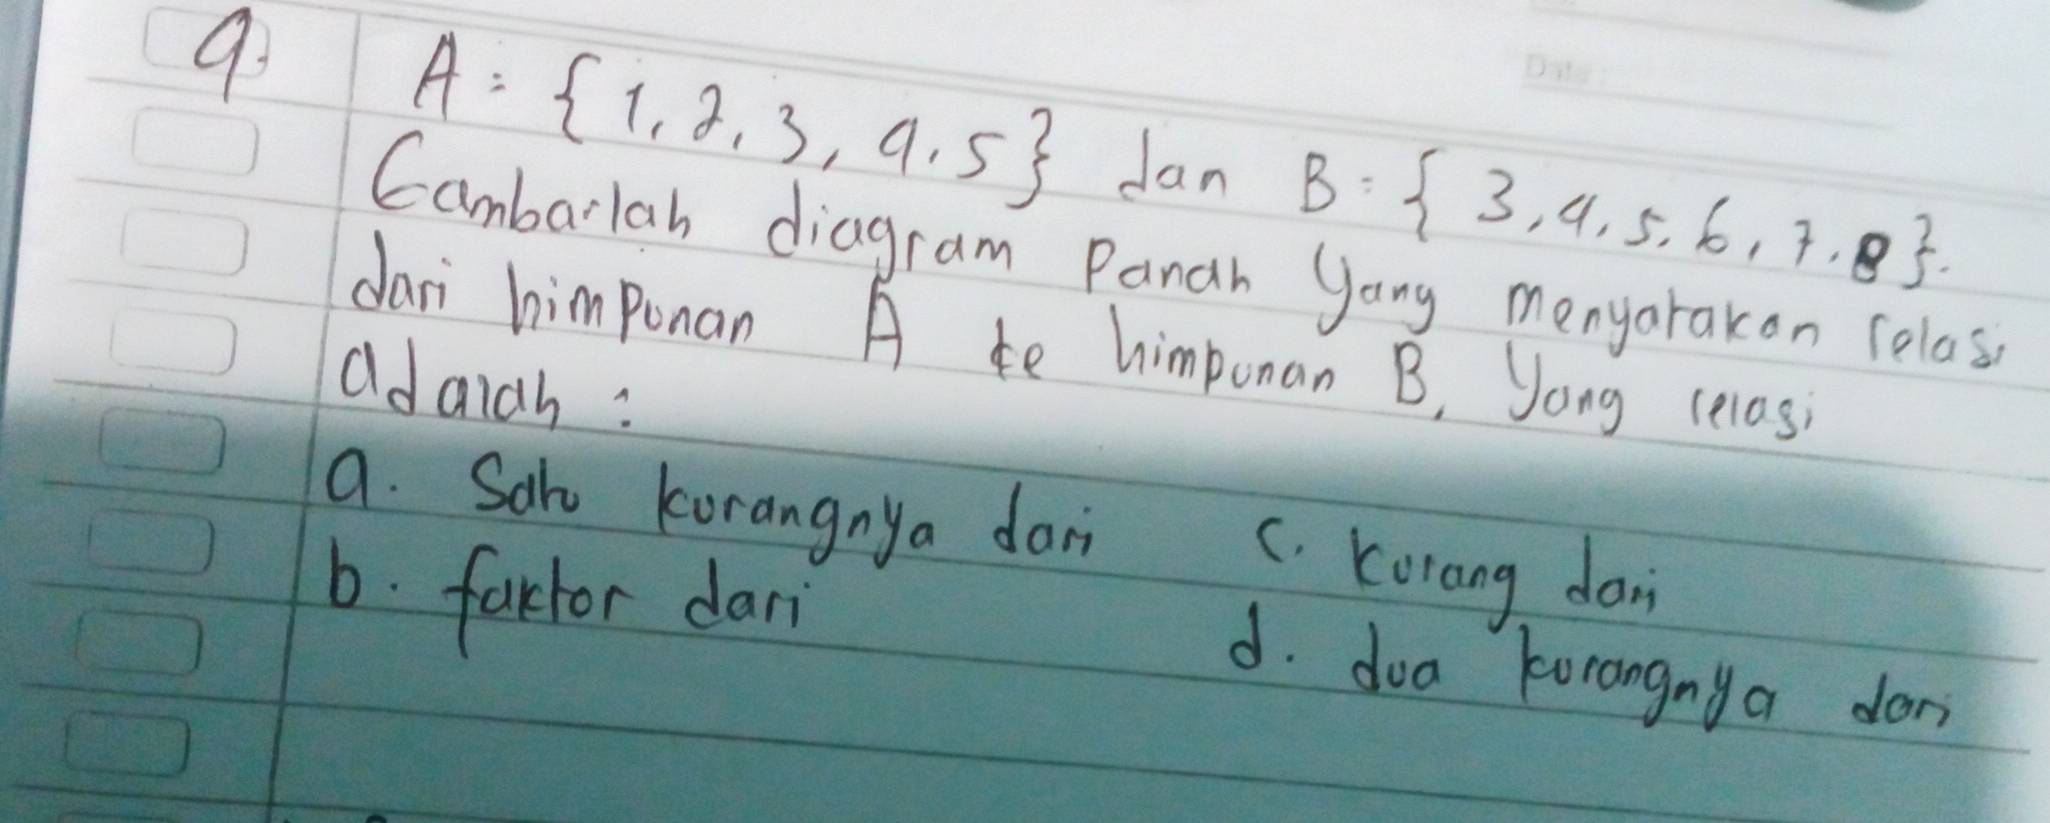 9. A = {1, 2, 3, 4, 5} dan B = {3, 4, 5, 6, 7, 8}.
Gambarlah diagram Panah Yang menyatakan relasi
dari himpunan A ke himpunan B, Yang relasi
adalah :
a. Satu kurangnya dari c. kurang dari
b. faktor dari d. dua kurangnya dari
Date: